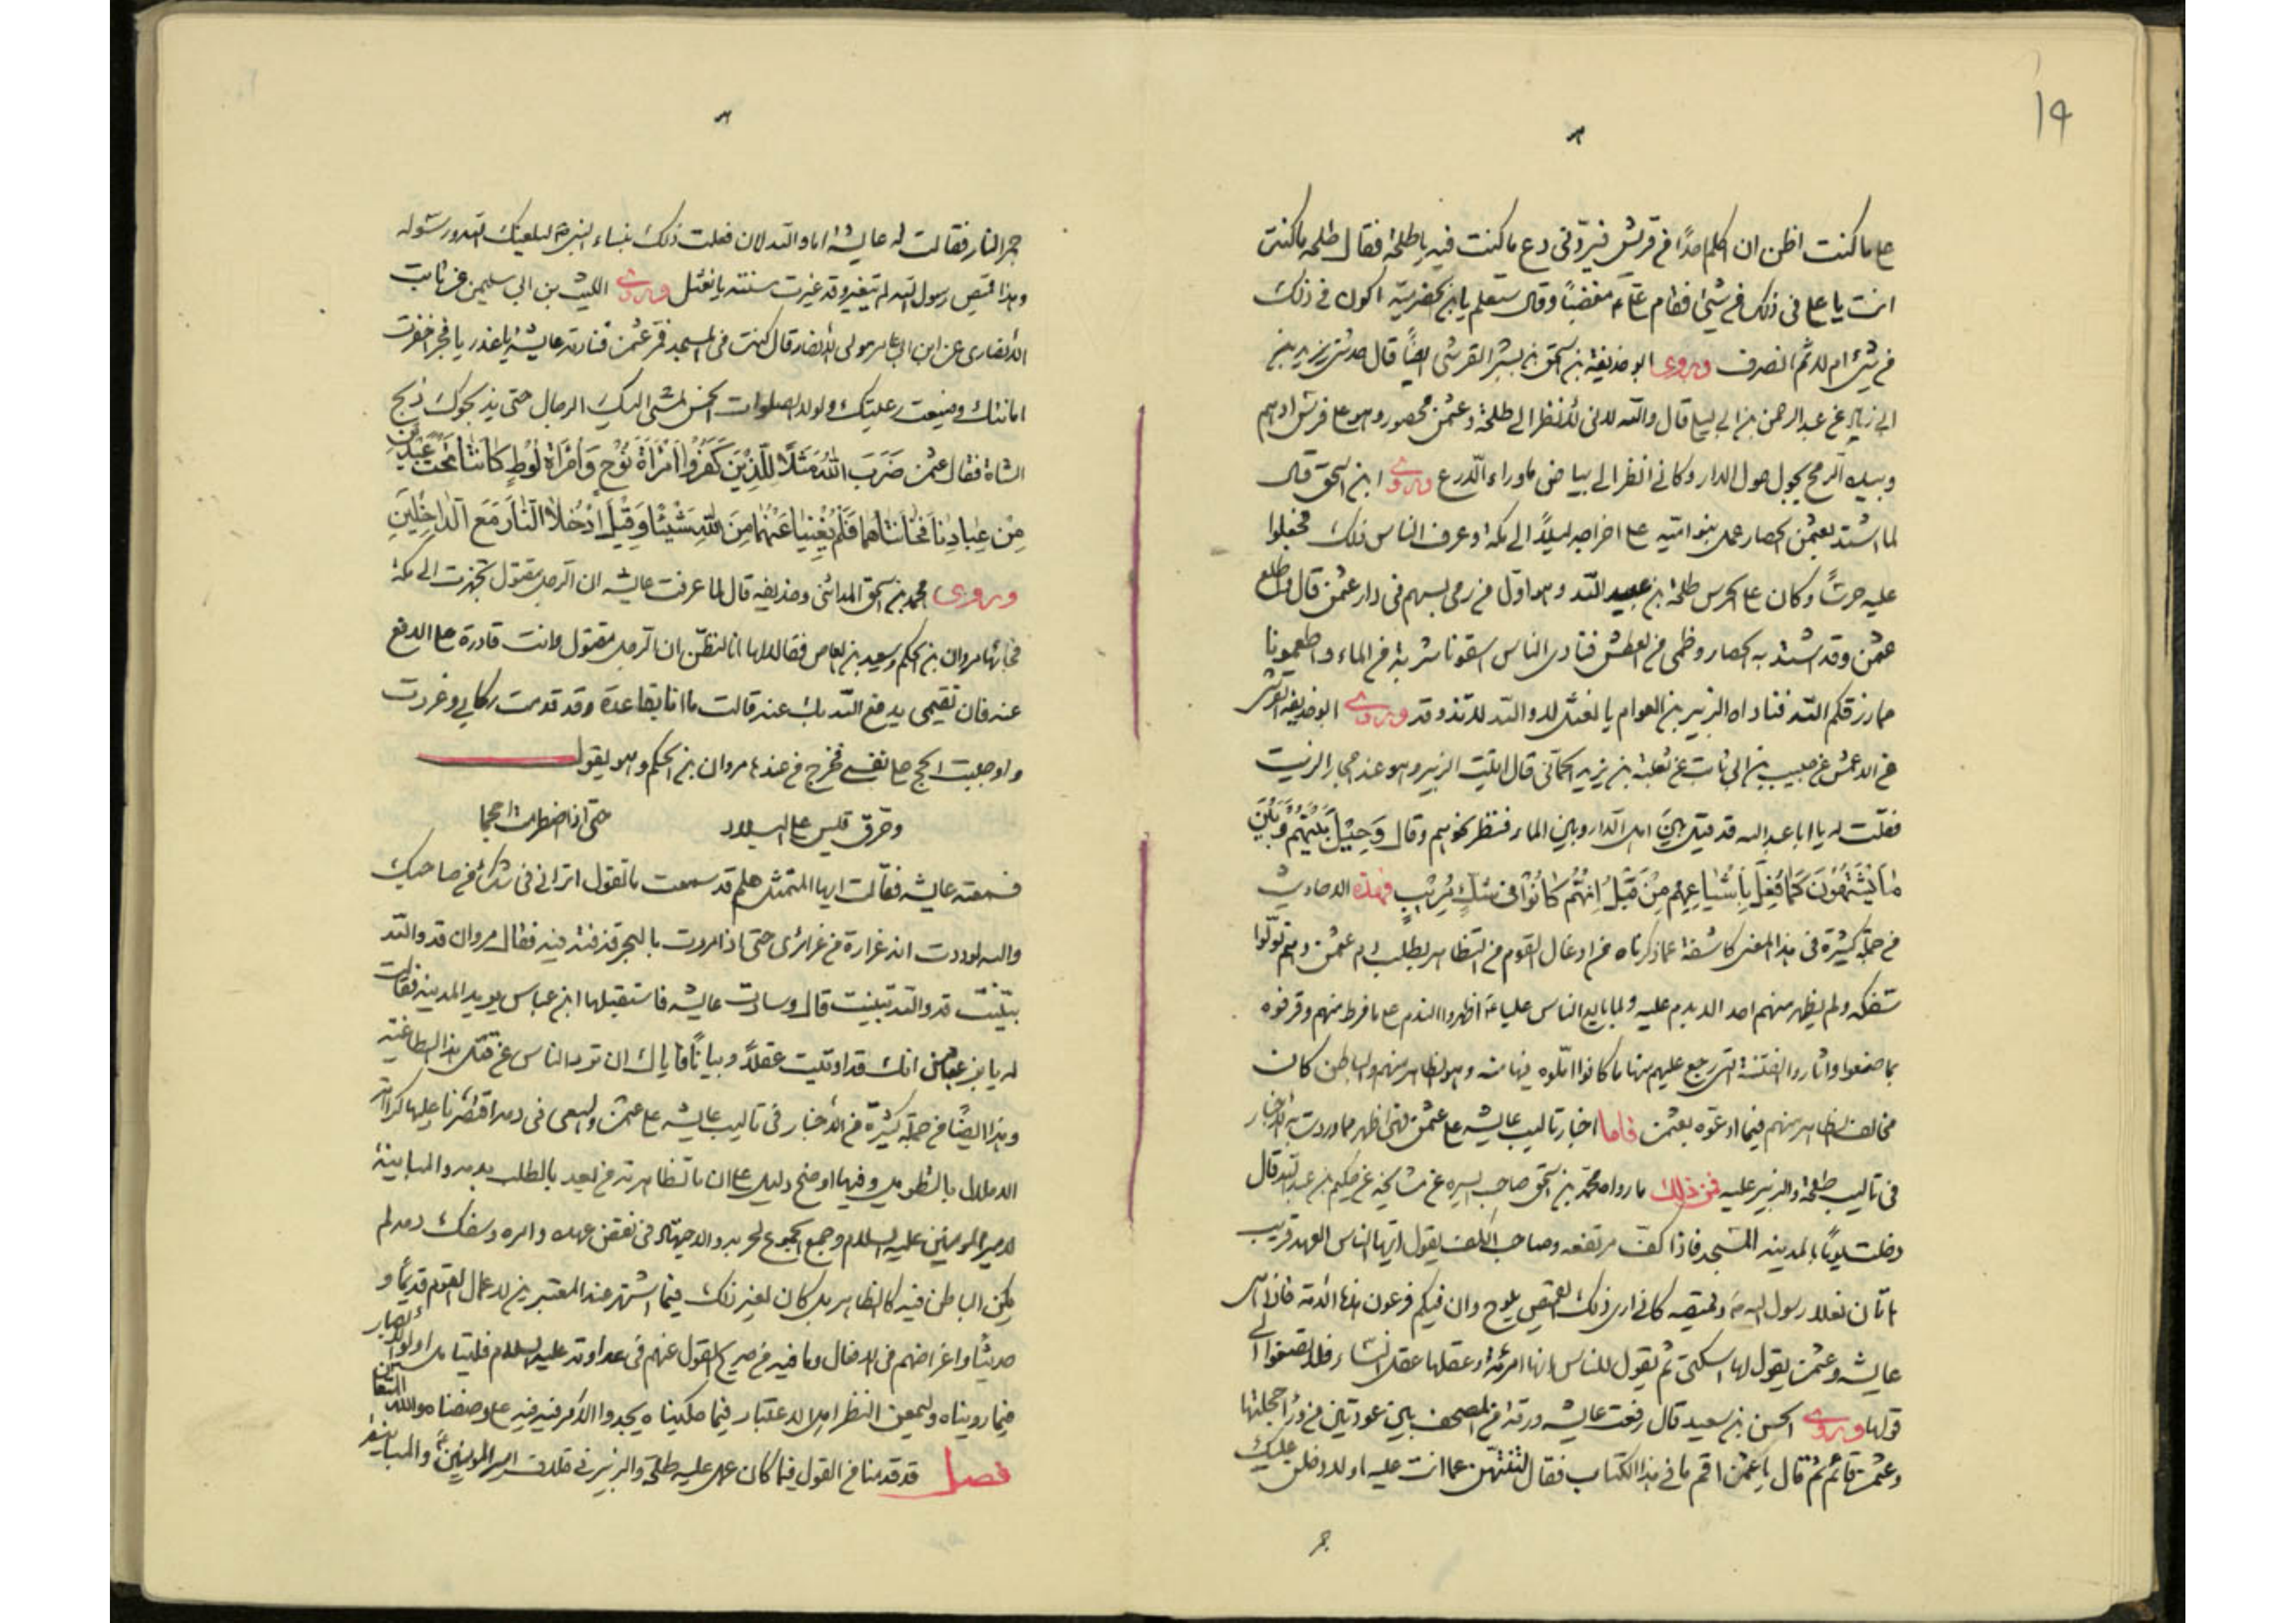 19
على ما كنت اظن ان اكلم احدًا من قريش فيردّني دع ما كنت فيه يا طلحة فقال طلحه ما كنت
انت يا على فى ذلك فى شئ فقام علىّ ع مغضبًا وقال ستعلم يا بن الحضرميه اكون فى ذلك
فى شئ ام لا ثم انصرف وروى ابو حذيفة بن اسحق بن بشر القرشى ايضًا قال حدثنى يزيد بن
ابى زياد عن عبد الرحمن بن ابى ليلى قال والله لانى لانظر الى طلحة وعثمن محصور وهو على فرس ادهم
وبيده الرمح يجول حول الدار وكانى انظر الى بياض ماوراء الدرع وروى ابن اسحق قال
لما اشتد بعثمن الحصار عمل بنو اميّه على اخراجه ليلاً الى مكة وعرف الناس ذلك فجعلوا
عليه حرسًا وكان على الحرس طلحة بن عبيد الله وهو اوّل من رمى بسهم فى دار عثمن قال واطلع
عثمن وقد اشتد به الحصار وظمى من العطش فنادى الناس اسقونا شربة من الماء واطعمونا
مما رزقكم الله فناداه الزبير بن العوام يا نعثل لا والله لا تذوقه وروى ابو حذيفة القرشى
عن الاعمش عن حبيب بن ابى ثابت عن ثعلبة بن يزيد الحمانى قال اتيت الزبير وهو عند احجار الزيت
فقلت له يا ابا عبدالله قد حيل بين اهل الدار وبين الماء فنظر نحوهم وقال وَحِيْلَ بَيْنَهُمْ وَبَيْنَ
مٰا يَشْتَهُوْنَ كَمٰا فُعِلَ بِاَشْيٰاعِهِمْ مِنْ قَبْلُ اِنَّهُمْ كٰانُوْا فى شَكٍّ مُرِيْبٍ فهذه الاحاديث
من جملة كثيرة فى هذا المعنى كاشفة عما ذكرناه من ادغال القوم من التظاهر بطلب دم عثمن وهم تولّوا
سفكه ولم يظهر منهم احد الا بدم عليه ولما بايع الناس عليا ع اظهروا الندم على ما فرط منهم وقرفوه
بما صنعوا واثاروا الفتنة التى رجع عليهم منها ما كانوا املّوه فيها منه وهو لظاهر منهم والباطن كان
مخالف لظاهر منهم فيما ادعوه بعثمن فاما اخبار تاليب عايشه على عثمن فهى اظهر مما وردت به الاخبار
فى تاليب طلحة والزبير عليه فمن ذلك ما رواه محمد بن اسحق صاحب السيره عن مشايخه عن حكيم بن عبدالله قال
دخلت يومًا بالمدينه المسجد فاذا كفّ مرتفعه وصاحب الكف يقول ايها الناس العهد قريب
هاتان نعلا رسول الله ص وقميصه كانى ارى ذلك القميص يلوح وان فيكم فرعون هذه الامة فاذا هى
عايشه وعثمن يقول لها اسكتى ثم يقول للناس انها امرئة وعقلها عقل النساء فلا تصغوا الى
قولها وروى الحسن بن سعيد قال رفعت عايشه ورقة من المصحف بين عودتين من وراء حجلتها
وعثمن قائم ثم قال يا عثمن اقم ما فى هذا الكتاب فقال لتنتهين عما انت عليه او لادخلن عليك
جمر
جمر النار فقالت له عايشه اما والله لان فعلت ذلك بنساء النبى ص ليلعنك الله ورسوله
وهذا قميص رسول الله لم يتغير وقد غيرت سنته يا نعثل وروى الليث بن ابى سليمن عن ثابت
الانصارى عن ابن ابى عامر مولى الانصار قال كنت فى المسجد فمر عثمن فنادته عايشه يا غدر يا فجر اخفرت
امانتك وضيعت رعيتك ولولا الصلوات الخمس لمشى اليك الرجال حتى يذبحوك ذبح
الشاة فقال عثمن ضَرَبَ اللهُ مَثَلًا لِلَّذِيْنَ كَفَرُوْا امْرَاَةَ نُوْحٍ وَامْرَاَةَ لُوْطٍ كٰانَتٰا تَحْتَ عَبْدَيْنِ
مِنْ عِبٰادِنٰا فَخٰانَتٰاهُمٰا فَلَمْ يُغْنِيٰا عَنْهُمٰا مِنَ اللهِ شَيْئًا وَقِيْلَ ادْخُلَا النّٰارَ مَعَ الدّٰاخِلِيْنَ
وروى محمد بن اسحق المدائنى وحذيفه قال لما عرفت عايشه ان الرجل مقتول تجهزت الى مكة
فجائها مروان بن الحكم وسعيد بن العاص فقالا لها انا لنظنّ ان الرجل مقتول وانت قادرة على الدفع
عنه فان تقيمى يدفع الله بك عنه قالت ما انا بقاعدة وقد قدمت ركابى وغررت
واوجبت الحج على نفسى فخرج من عندها مروان بن الحكم وهو يقول
وحرّق قيس على البلاد حتى اذا اضطرمت اجحما
فسمعته عايشه فقالت ايها المتمثل هلم قد سمعت ما تقول اترانى فى شك من صاحبك
والله لوددت انه فى غرارة من غرائرى حتى اذا مررت بالبحر قذفته فيه فقال مروان قد والله
تبيّنت قد والله تبينت قال وسارت عايشه فاستقبلها ابن عباس يريد المدينه فقالت
له يا بن عباس انك قد اوتيت عقلاً وبيانًا فاياك ان ترد الناس عن قتل هذا الطاغيه
وهذا ايضًا من جملة كثيرة من الاخبار فى تاليب عايشه على عثمن والسعى فى دمه اقتصرنا عليها كراهة
الاملال بالتطويل وفيها اوضح دليل على ان ما تظاهرت به من بعد بالطلب بدمه والمباينة
لامير المومنين عليه السلام وجمع الجموع لحربه والاجتهاد فى نقض عهده وامره وسفك دمه لم
يكن الباطن فيه كالظاهر بل كان لغير ذلك فيما اشتهر عند المعتبرين لاعمال القوم قديمًا و
حديثا واغراضهم فى الافعال وما فيه من صريح القول عنهم فى عداوته عليه السلام فليتامل اولوا الابصار
فيما رويناه وليمعن النظر اهل الاعتبار فيما حكيناه يجدوا الامر فيه على ما وصفناه والله المستعان
فصل قد قدمنا من القول فيما كان عمل عليه طلحة والزبير فى خلاف امير المومنين ع والمباينه